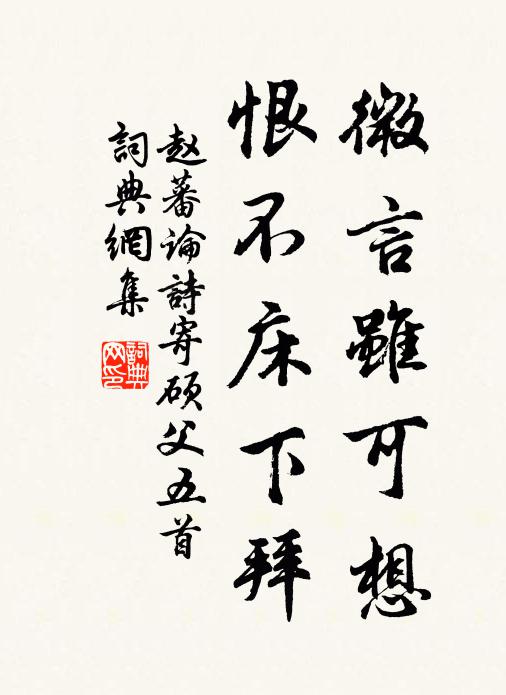 微言雖可想
恨不床下拜
赵蕃論詩寄碩父五首
詞典網集
詞典
网印